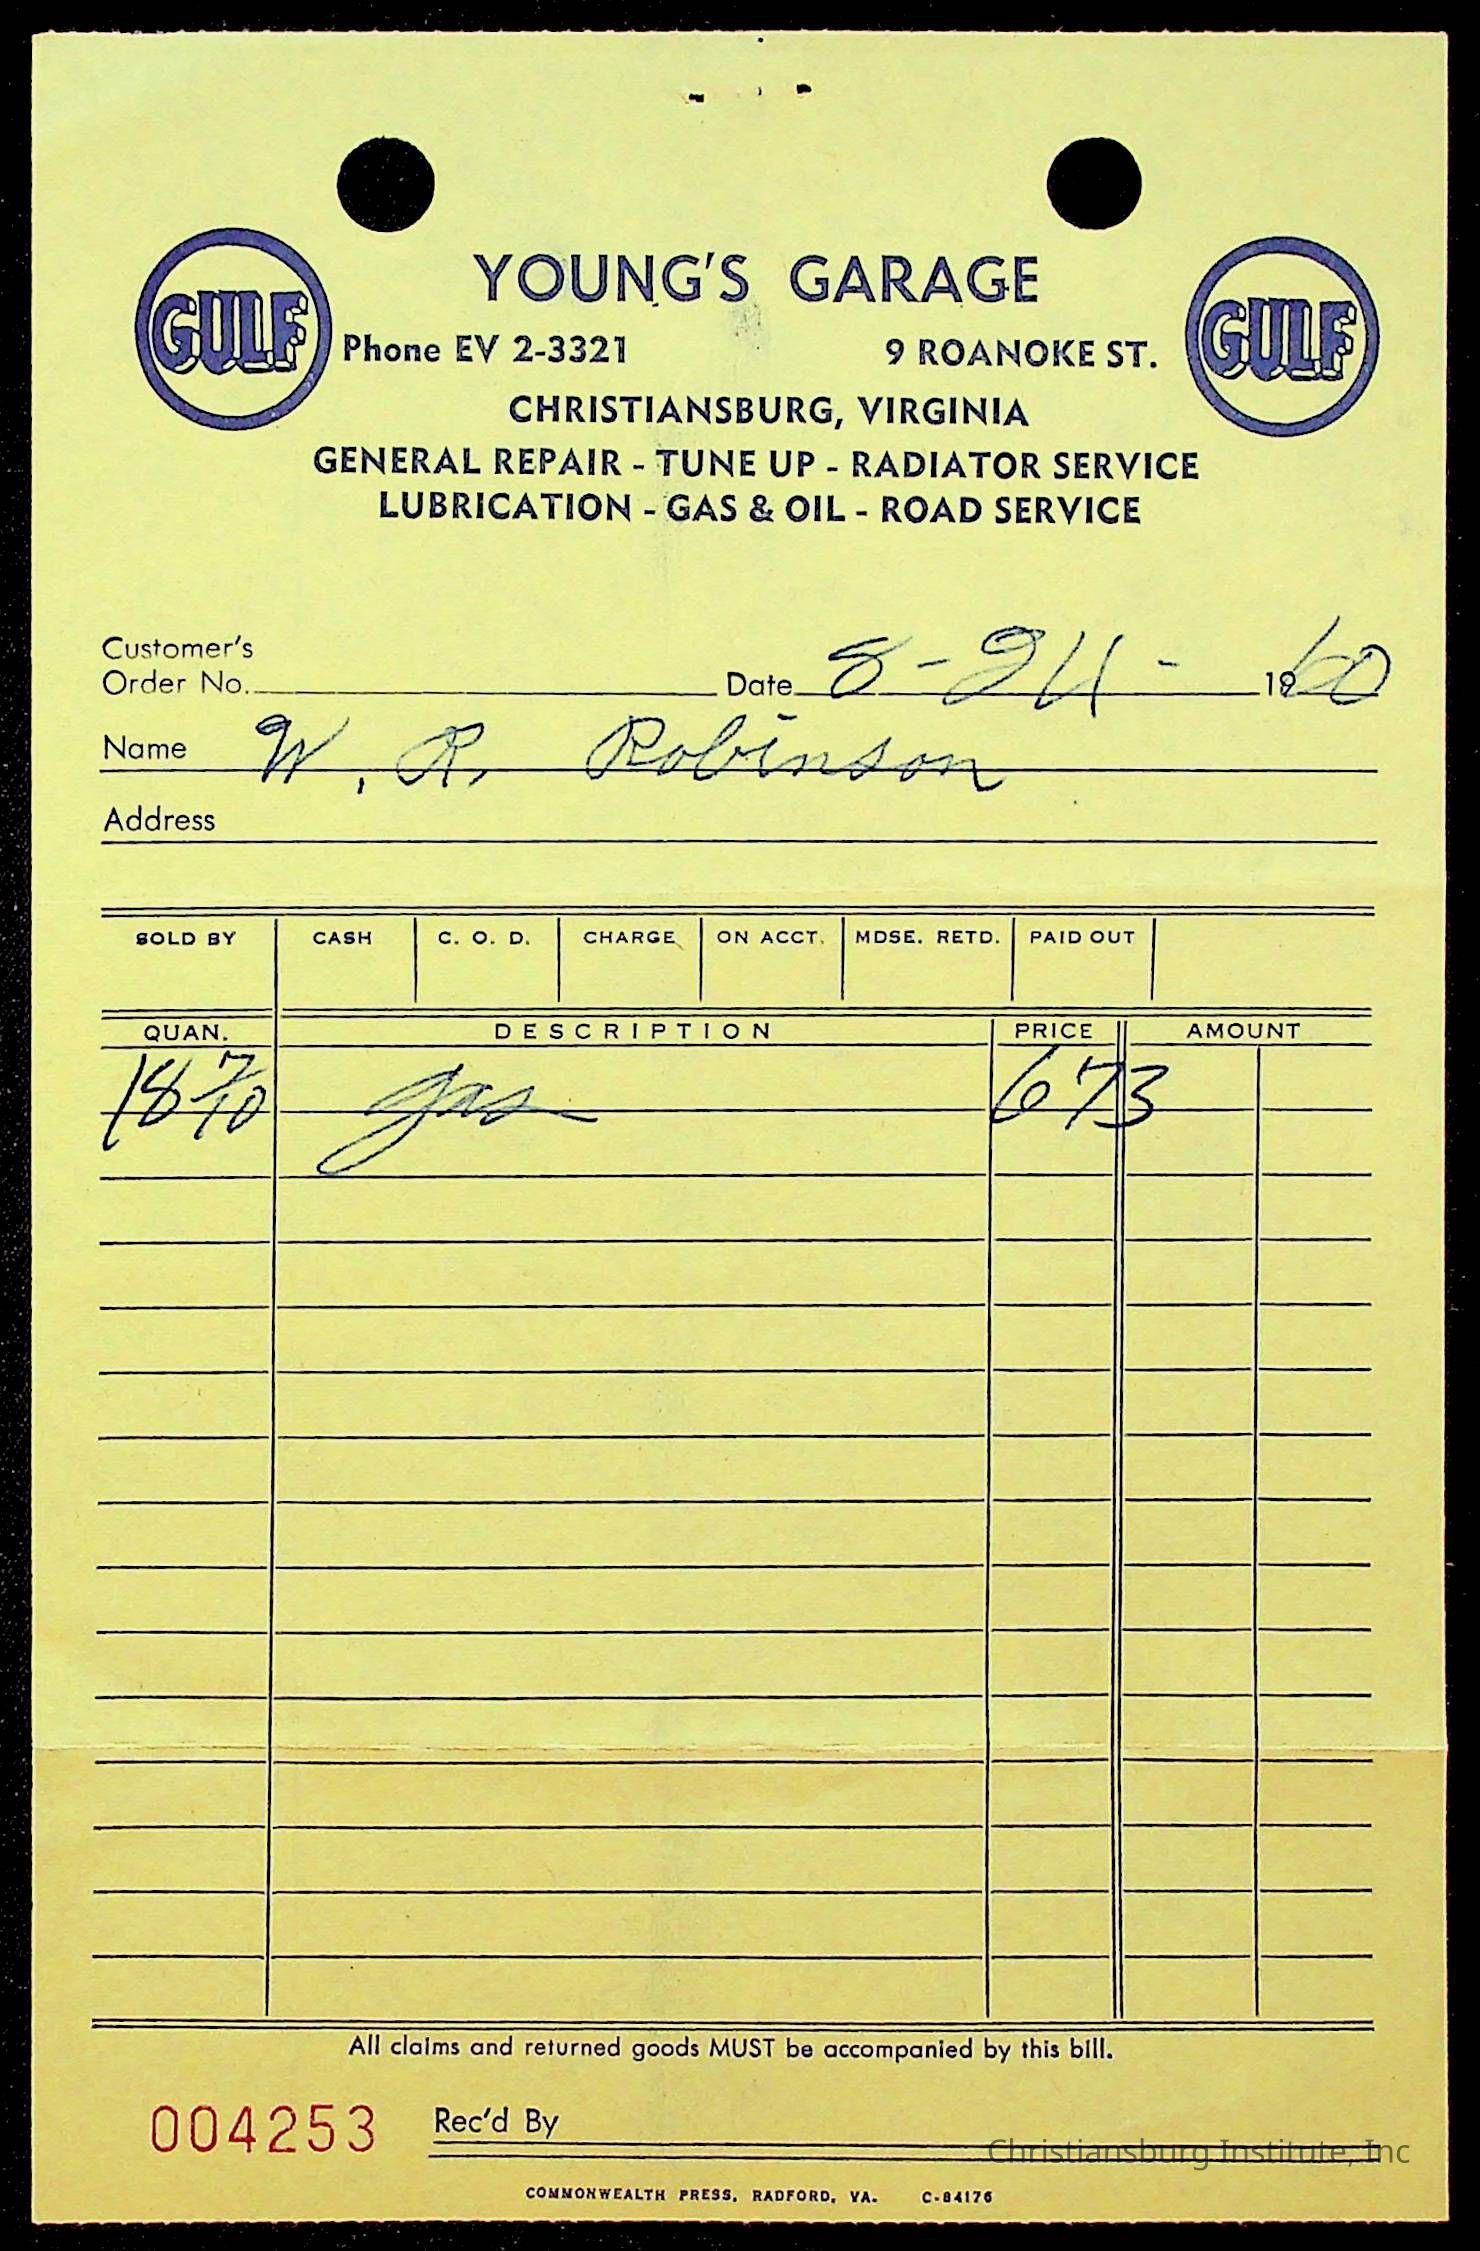 YOUNG'S GARAGE
GULF
Phone EV 2-3321 9 ROANOKE ST.
GULF
CHRISTIANSBURG, VIRGINIA
GENERAL REPAIR - TUNE UP - RADIATOR SERVICE
LUBRICATION - GAS & OIL - ROAD SERVICE
Customer's
Order No. Date 8-24- 1960
Name W. R. Robinson
Address
SOLD BY CASH C. O. D. CHARGE ON ACCT. MDSE. RETD. PAID OUT
QUAN. DESCRIPTION PRICE AMOUNT
18 7/10 gas 673
All claims and returned goods MUST be accompanied by this bill.
004253 Rec'd By
Christiansburg Institute, Inc
COMMONWEALTH PRESS, RADFORD, VA. C-84176